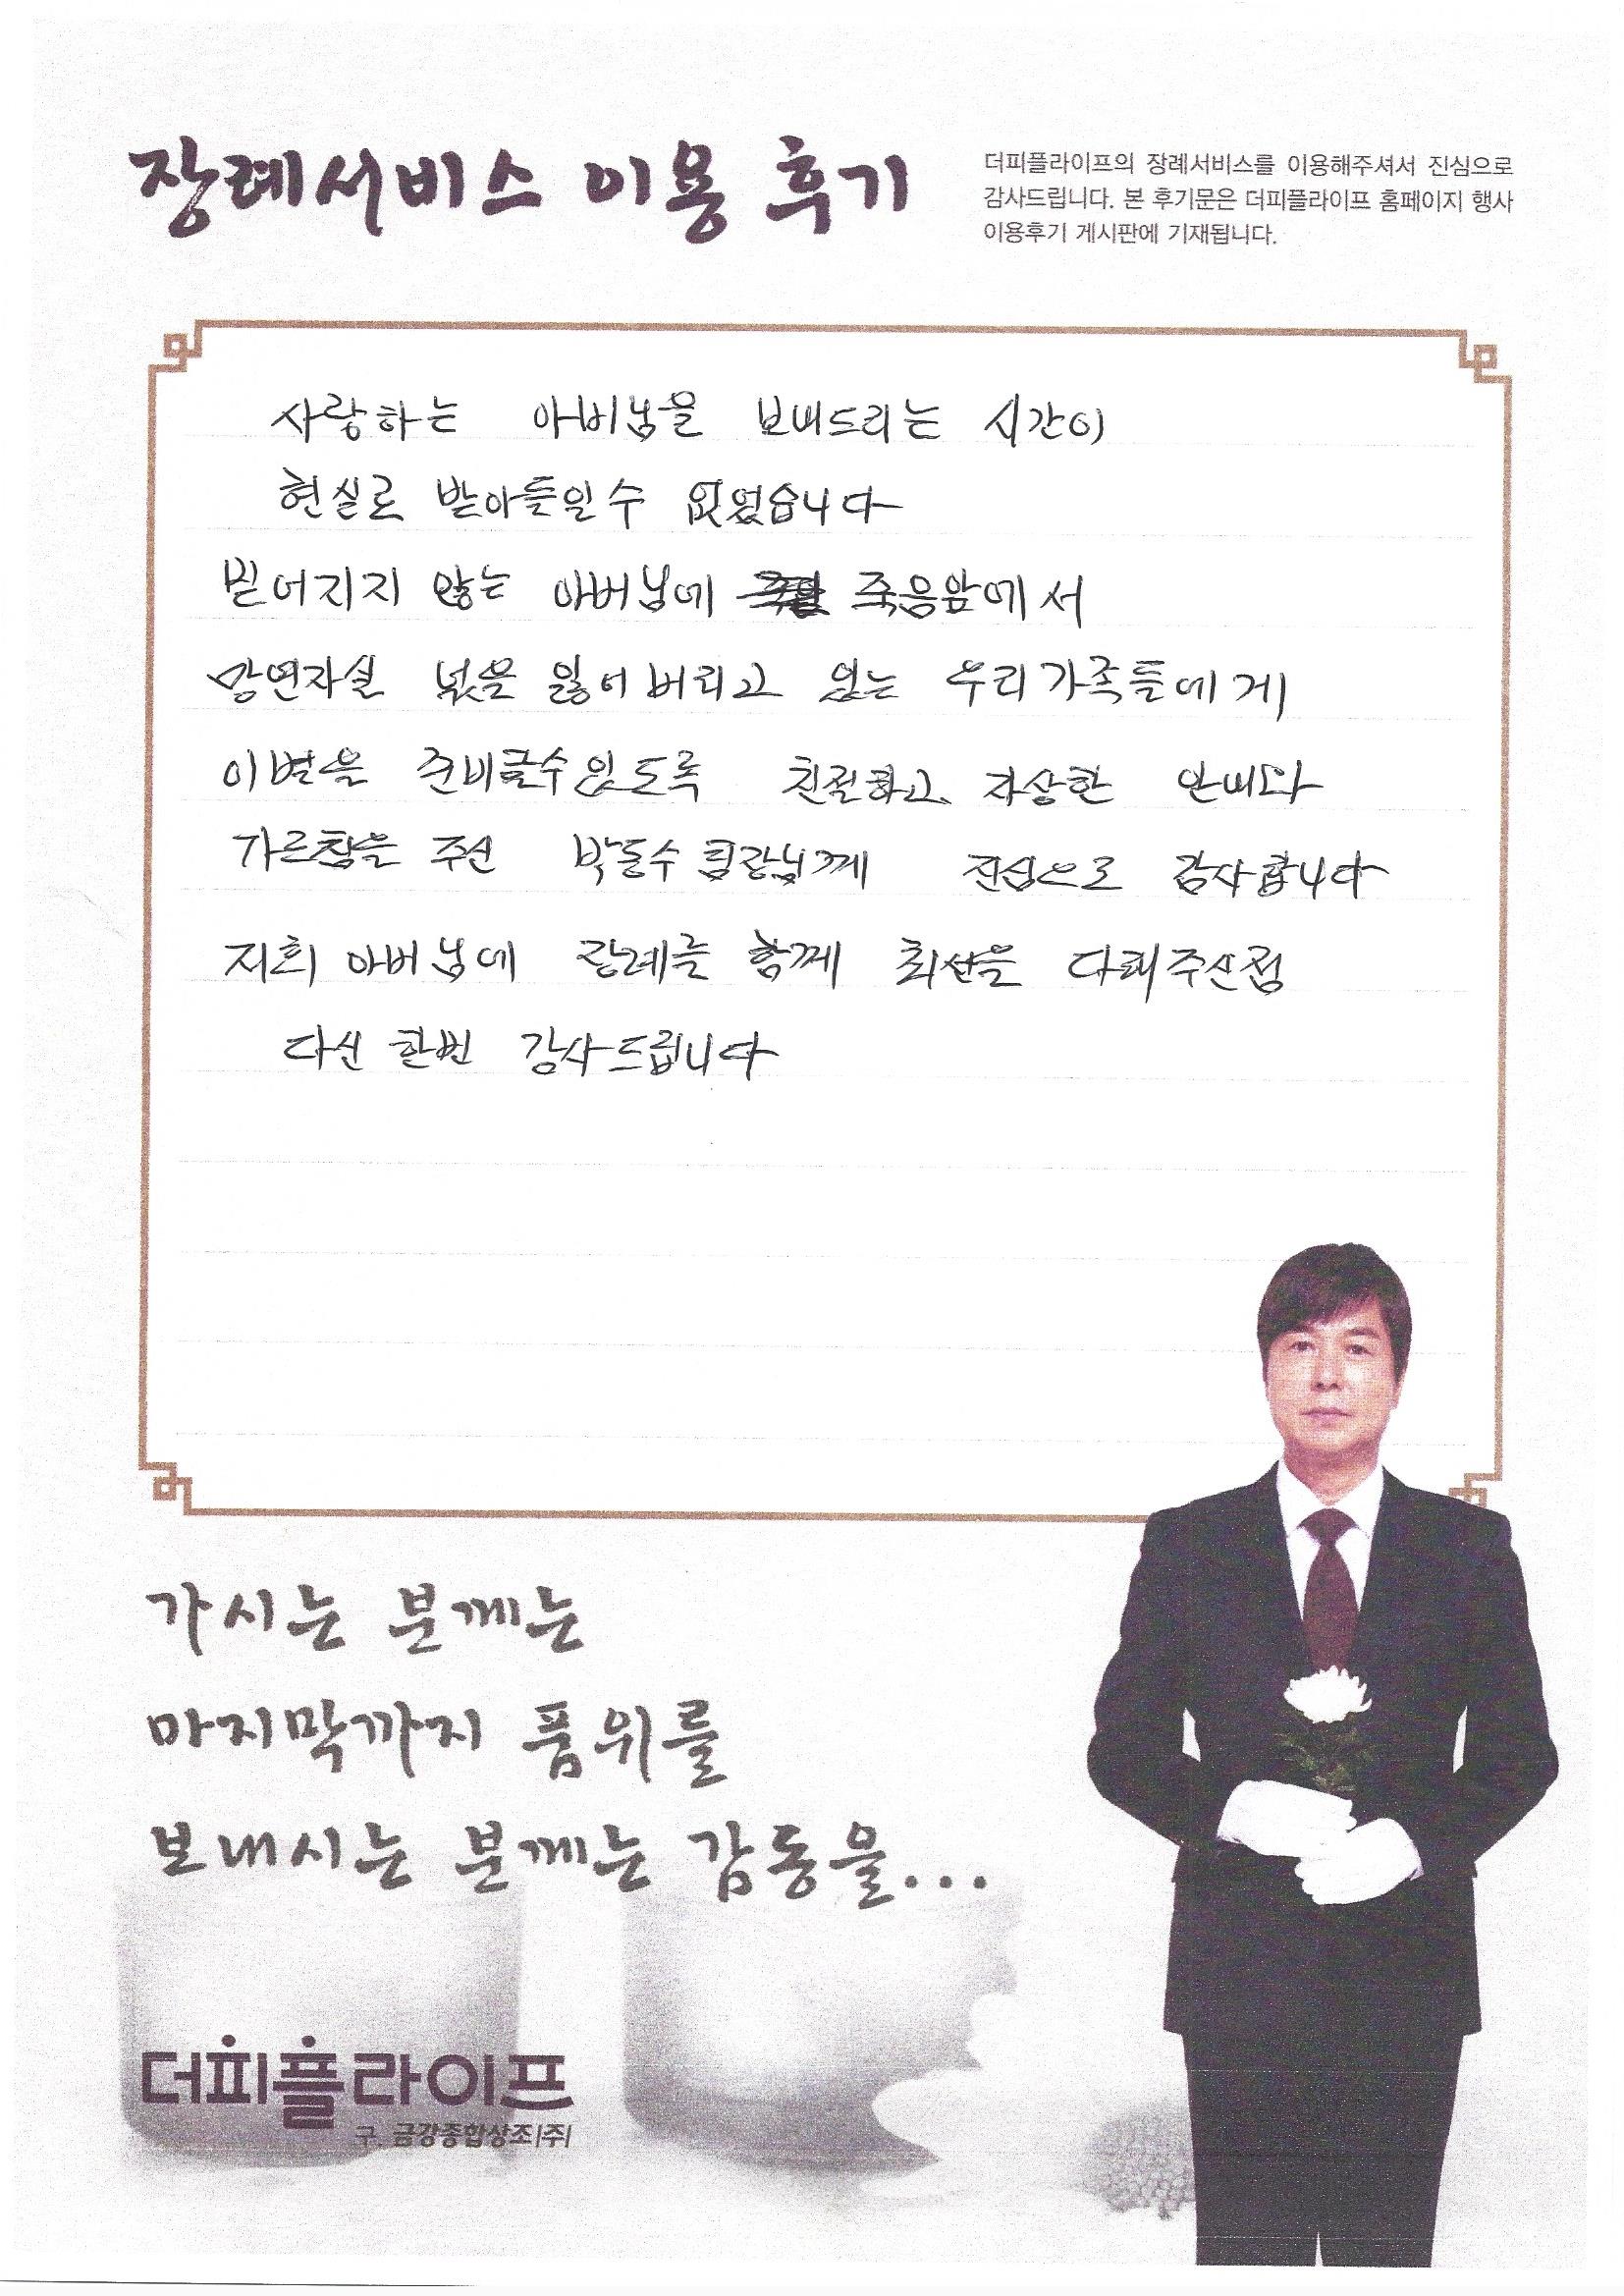 장례서비스 이용 후기
더피플라이프의 장례서비스를 이용해주셔서 진심으로
감사드립니다. 본 후기문은 더피플라이프 홈페이지 행사
이용후기 게시판에 기재됩니다.
사랑하는 아버님을 보내드리는 시간이
현실로 받아들일수 없었습니다
믿어지지 않는 아버님에 죽음앞에서
망연자실 넋을 잃어버리고 있는 우리가족들에게
이별을 준비할수있도록 친절하고 자상한 안내와
가르침을 주신 박동수 팀장님께 진심으로 감사합니다
저희 아버님에 장례를 함께 최선을 다해주신점
다신 한번 감사드립니다
가시는 분께는
마지막까지 품위를
보내시는 분께는 감동을...
더피플라이프
구. 금강종합상조(주)